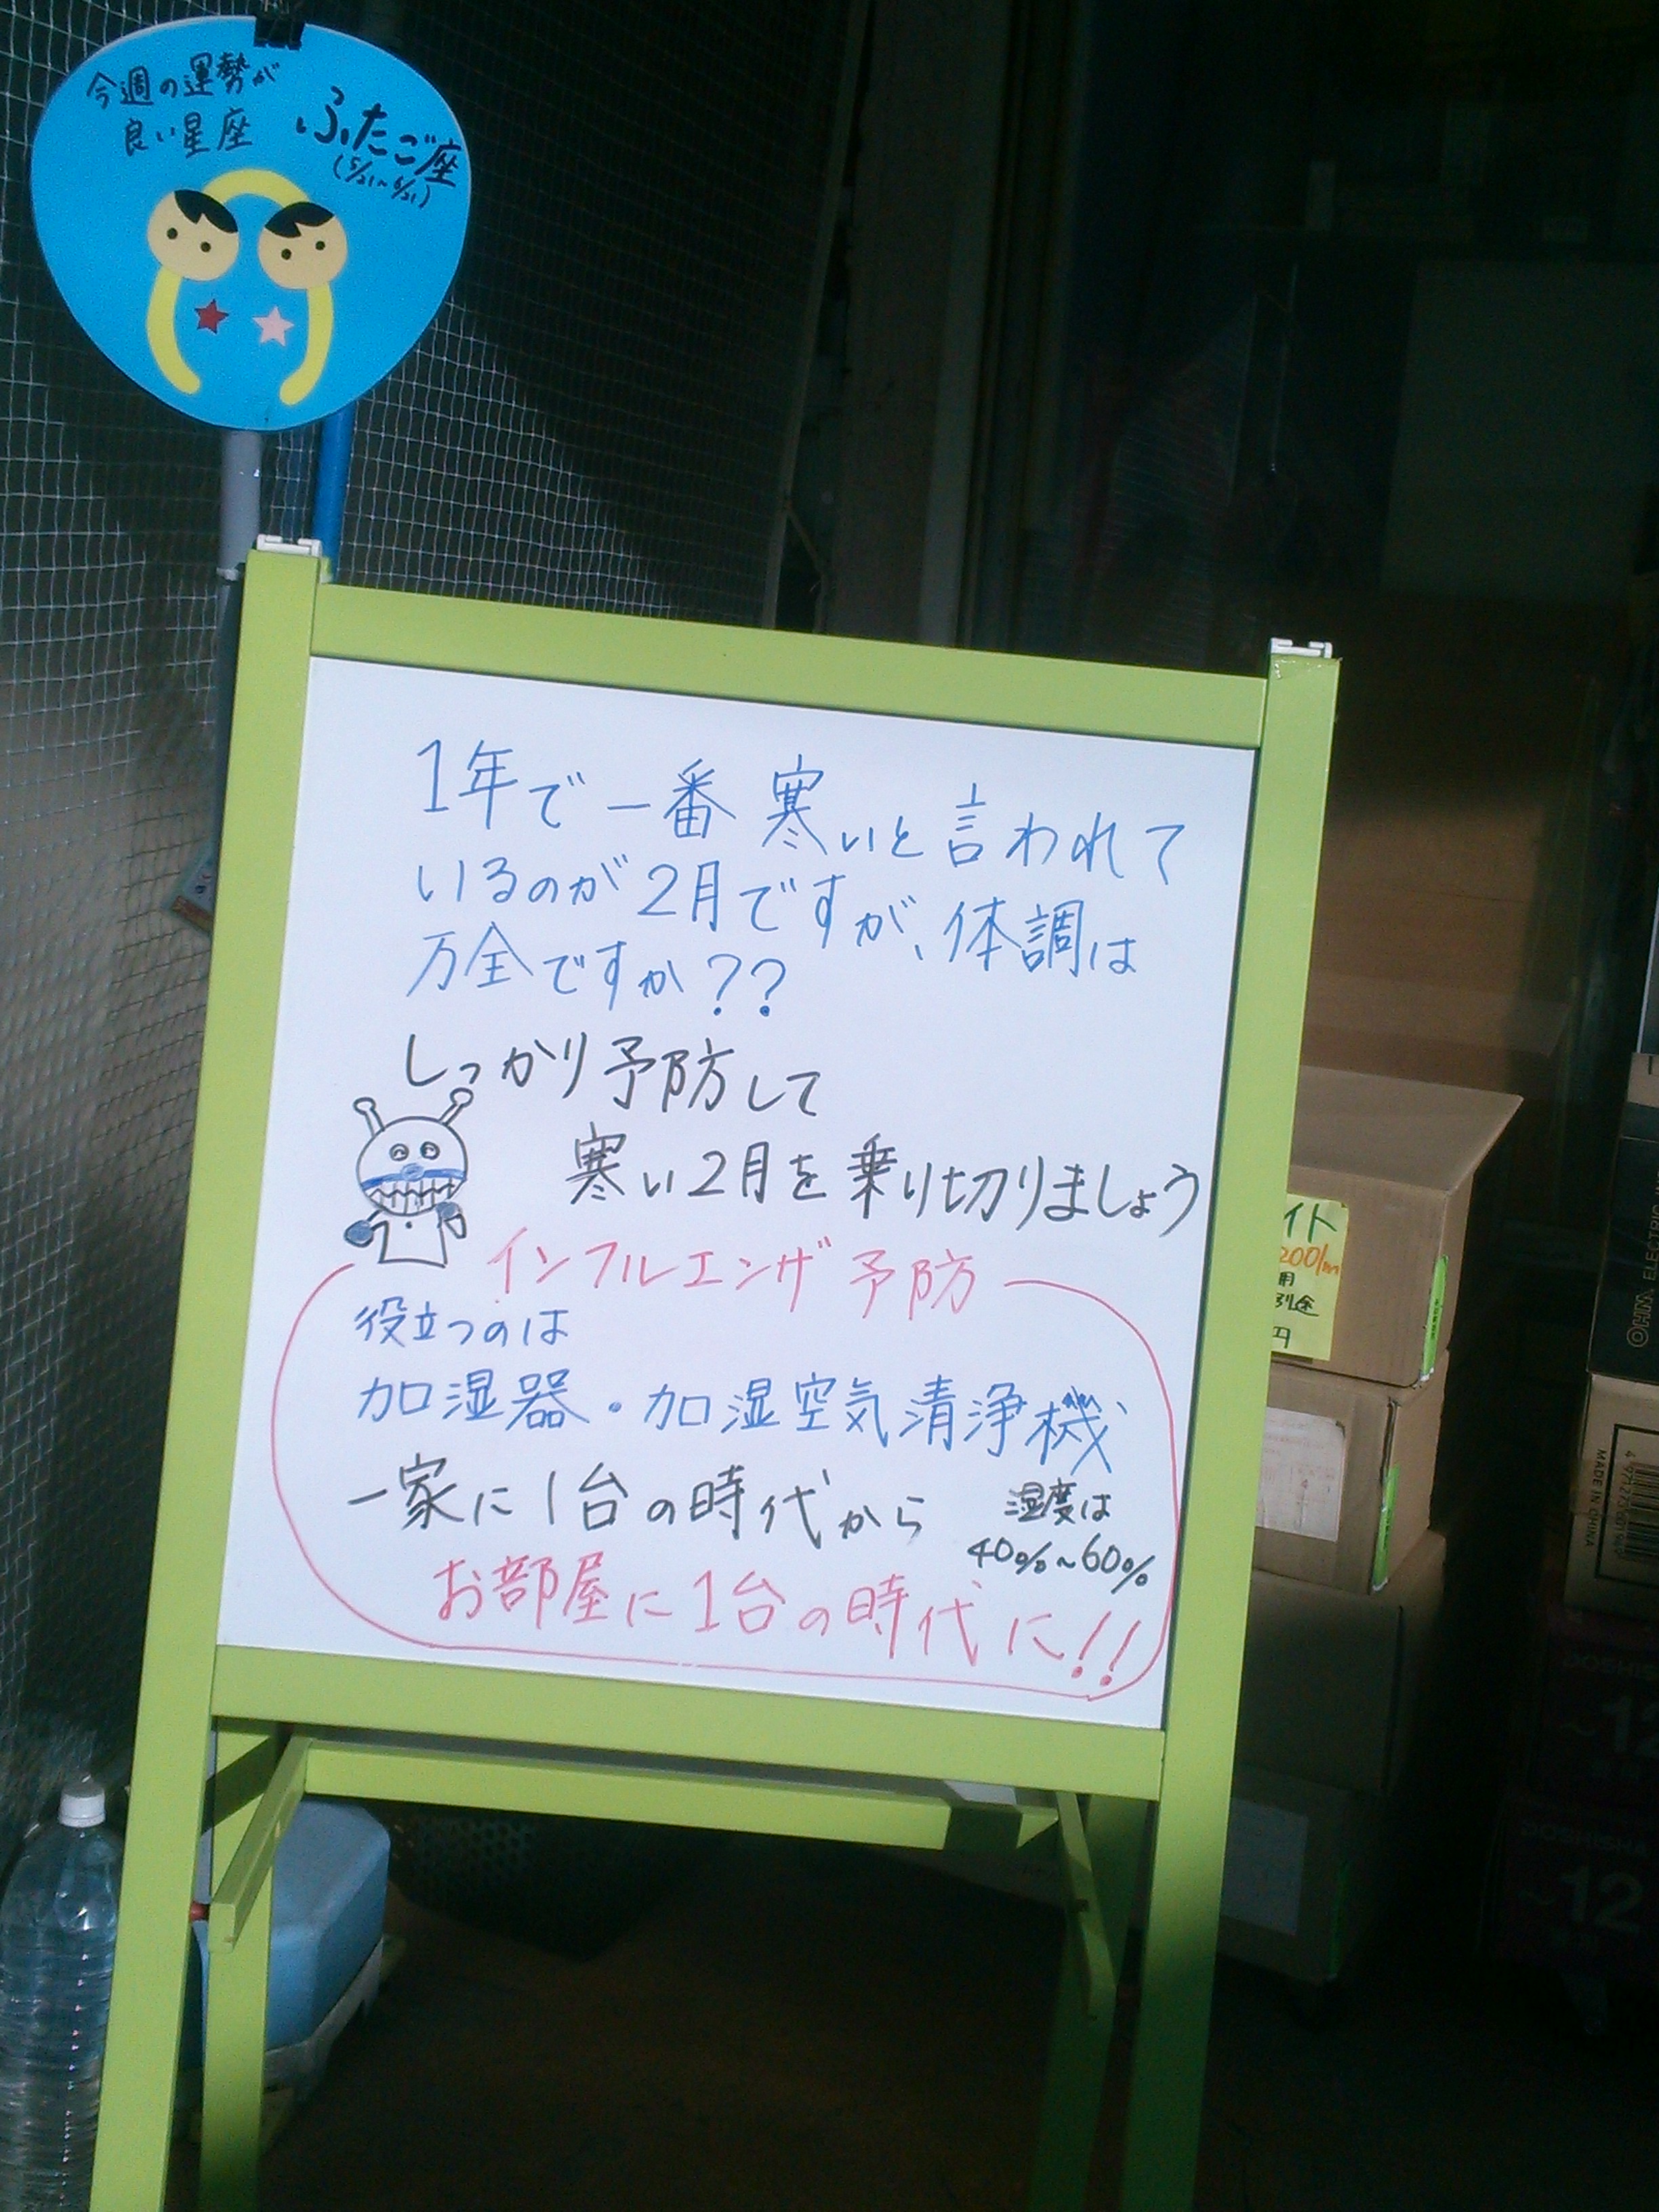 今週の運勢が
良い星座
ふたご座
(5/21~6/21)
1年で一番寒いと言われて
いるのが2月ですが、体調は
万全ですか??
しっかり予防して
寒い2月を乗り切りましょう
インフルエンザ予防
役立つのは
加湿器・加湿空気清浄機
一家に1台の時代から
湿度は
40%~60%
お部屋に1台の時代に!!
イト
200/m
用
別途
円
OHM ELECTRIC
MADE IN CHINA
12
12